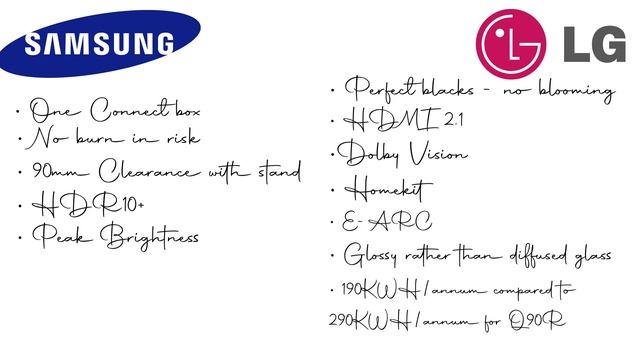 SAMSUNG
• One Connect box
• No burn in risk
• 90mm Clearance with stand
• HDR10+
• Peak Brightness
LG
• Perfect blacks - no blooming
• HDMI 2.1
• Dolby Vision
• Homekit
• E-ARC
• Glossy rather than diffused glass
• 190KWH/annum compared to
290KWH/annum for Q90R